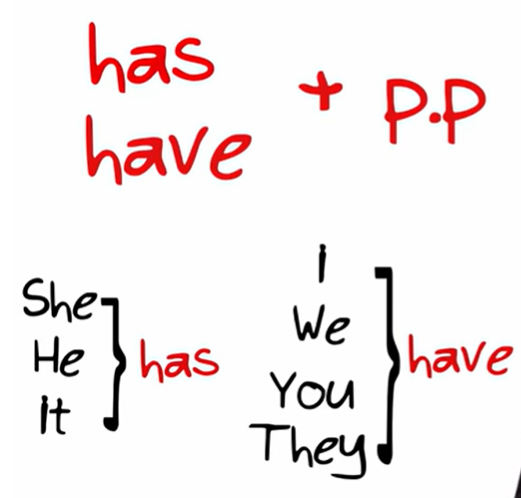 has
+ p.p
have
She
He
it
has
i
We
You
They
have